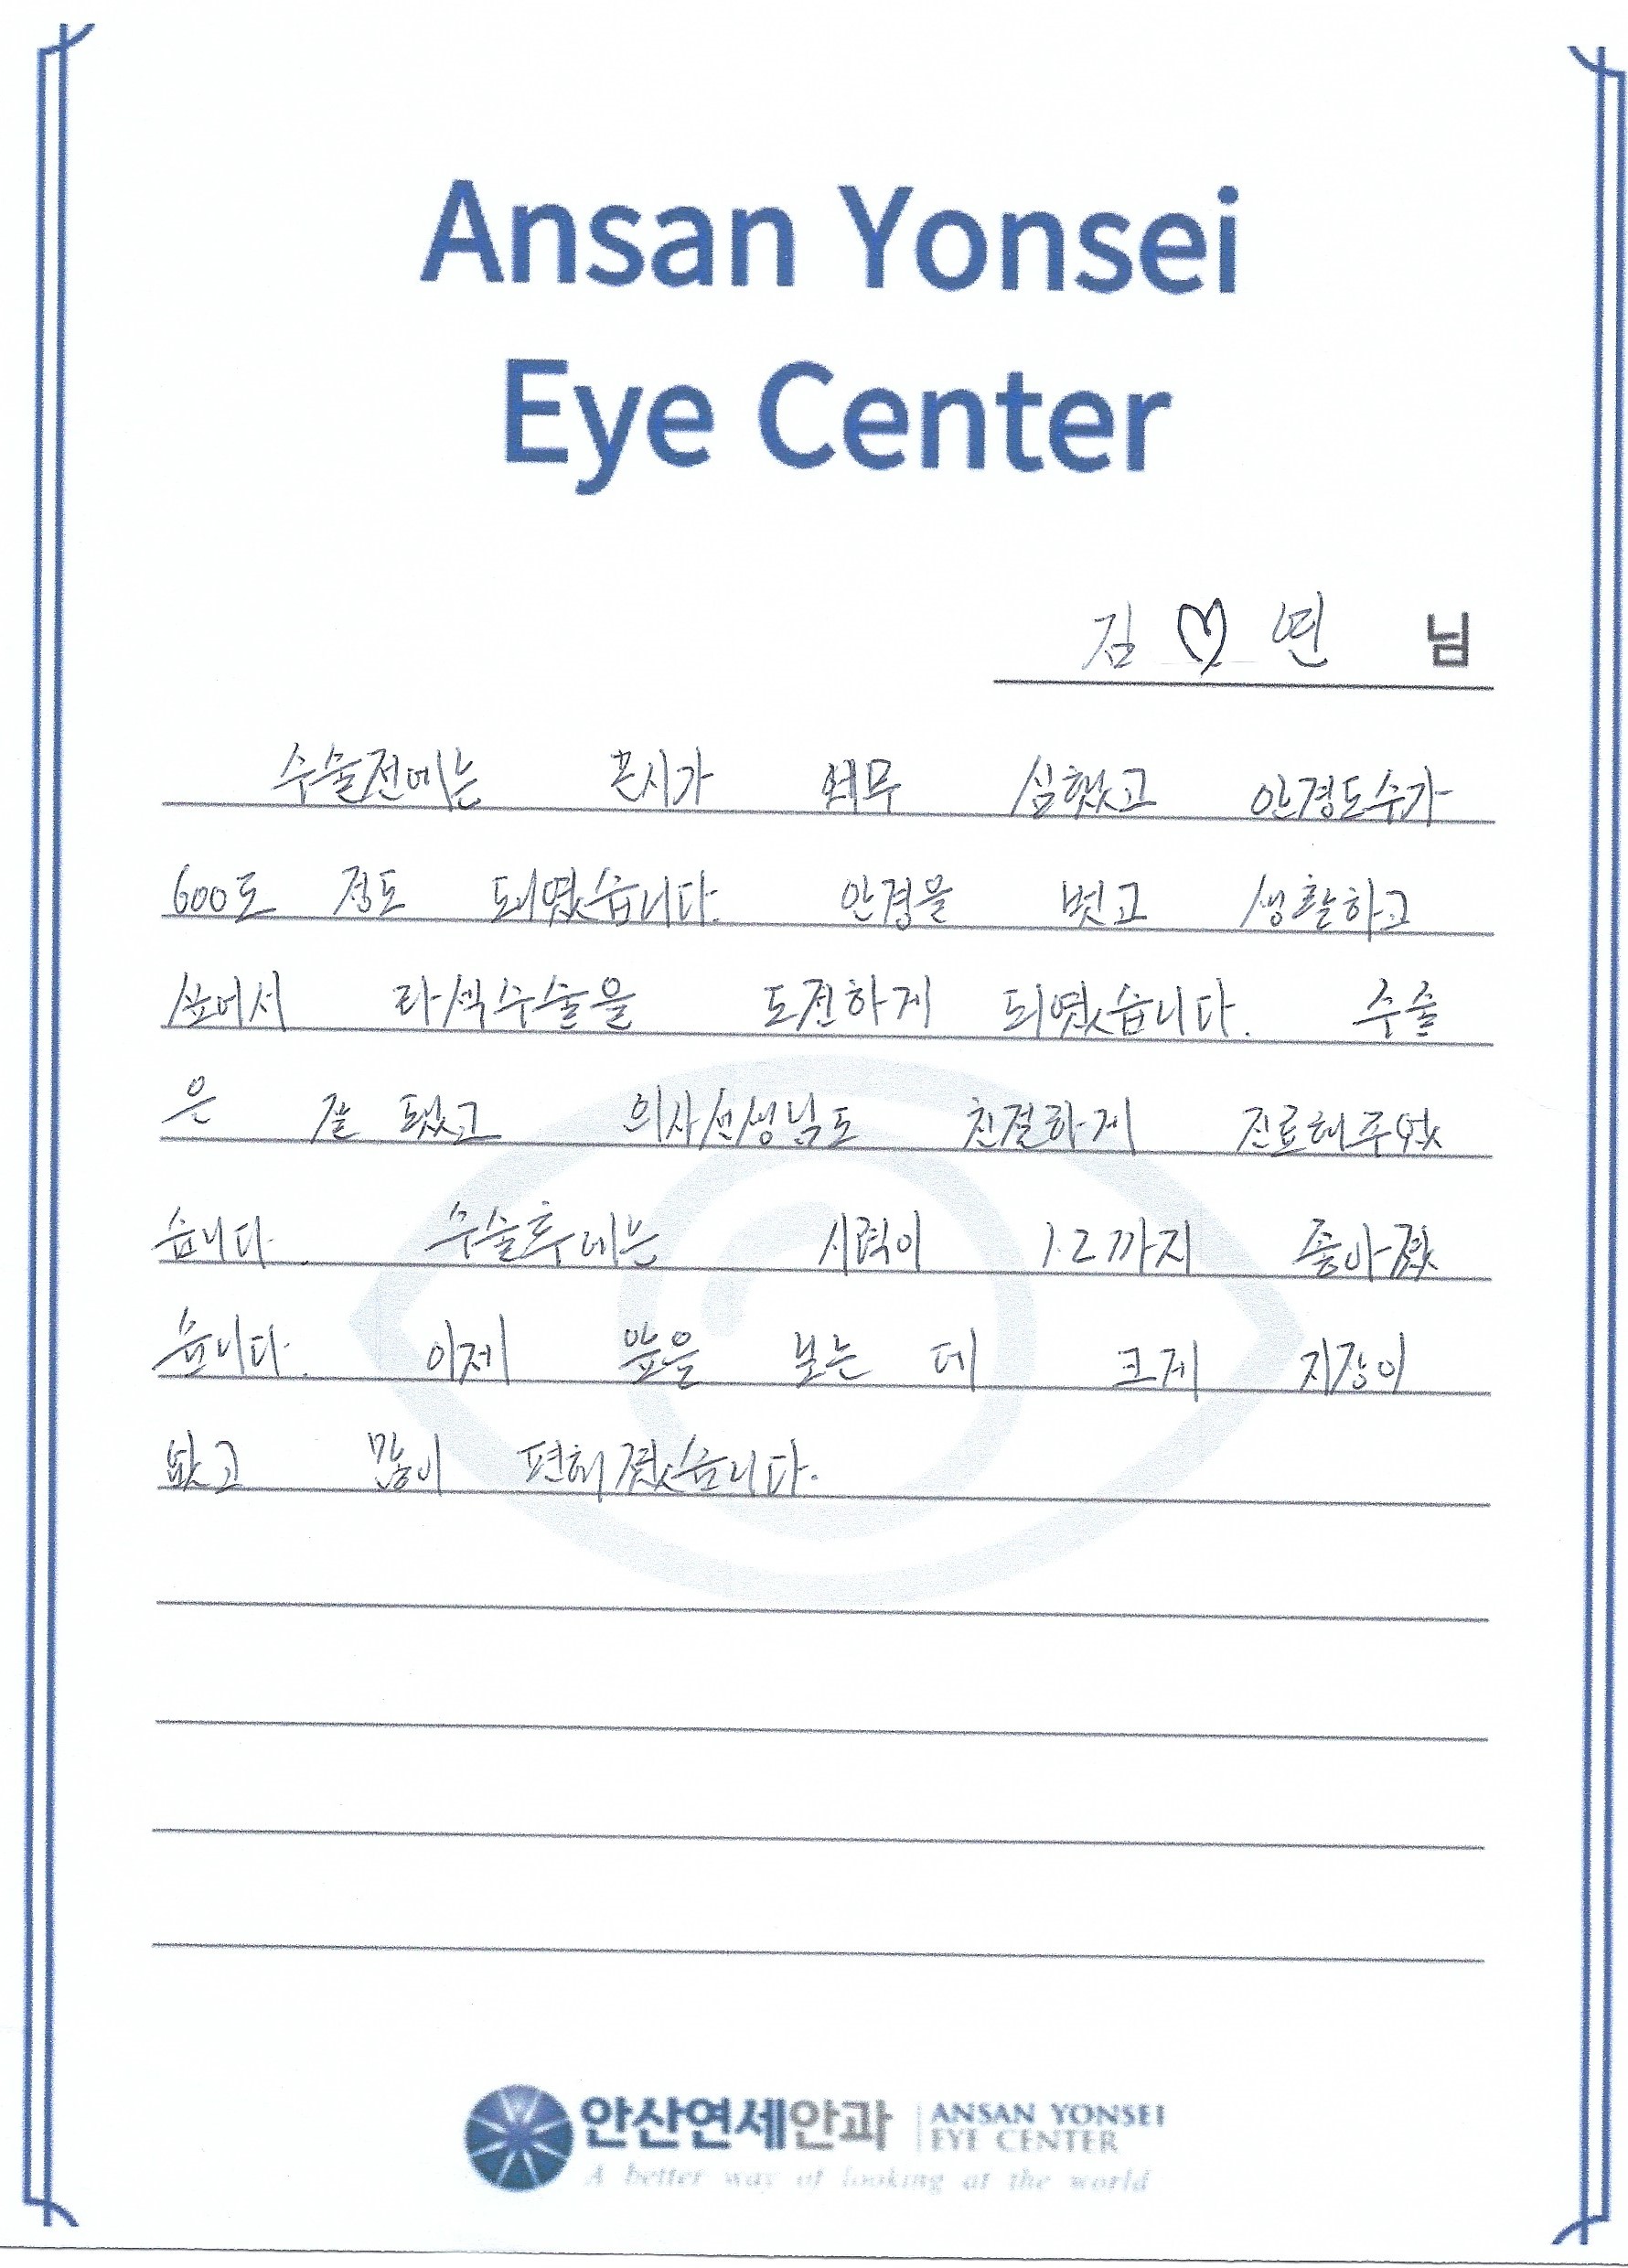 Ansan Yonsei
Eye Center
김 ♡ 연 님
수술전에는 근시가 너무 심했고 안경도수가
600도 정도 되었습니다. 안경을 벗고 생활하고
싶어서 라섹수술을 도전하게 되었습니다. 수술
은 잘 됐고 의사선생님도 친절하게 진료해주었
습니다. 수술후에는 시력이 1.2까지 좋아졌
습니다. 이제 앞을 보는 데 크게 지장이
없고 많이 편해졌습니다.
안산연세안과 ANSAN YONSEI
EYE CENTER
A better way of looking at the world